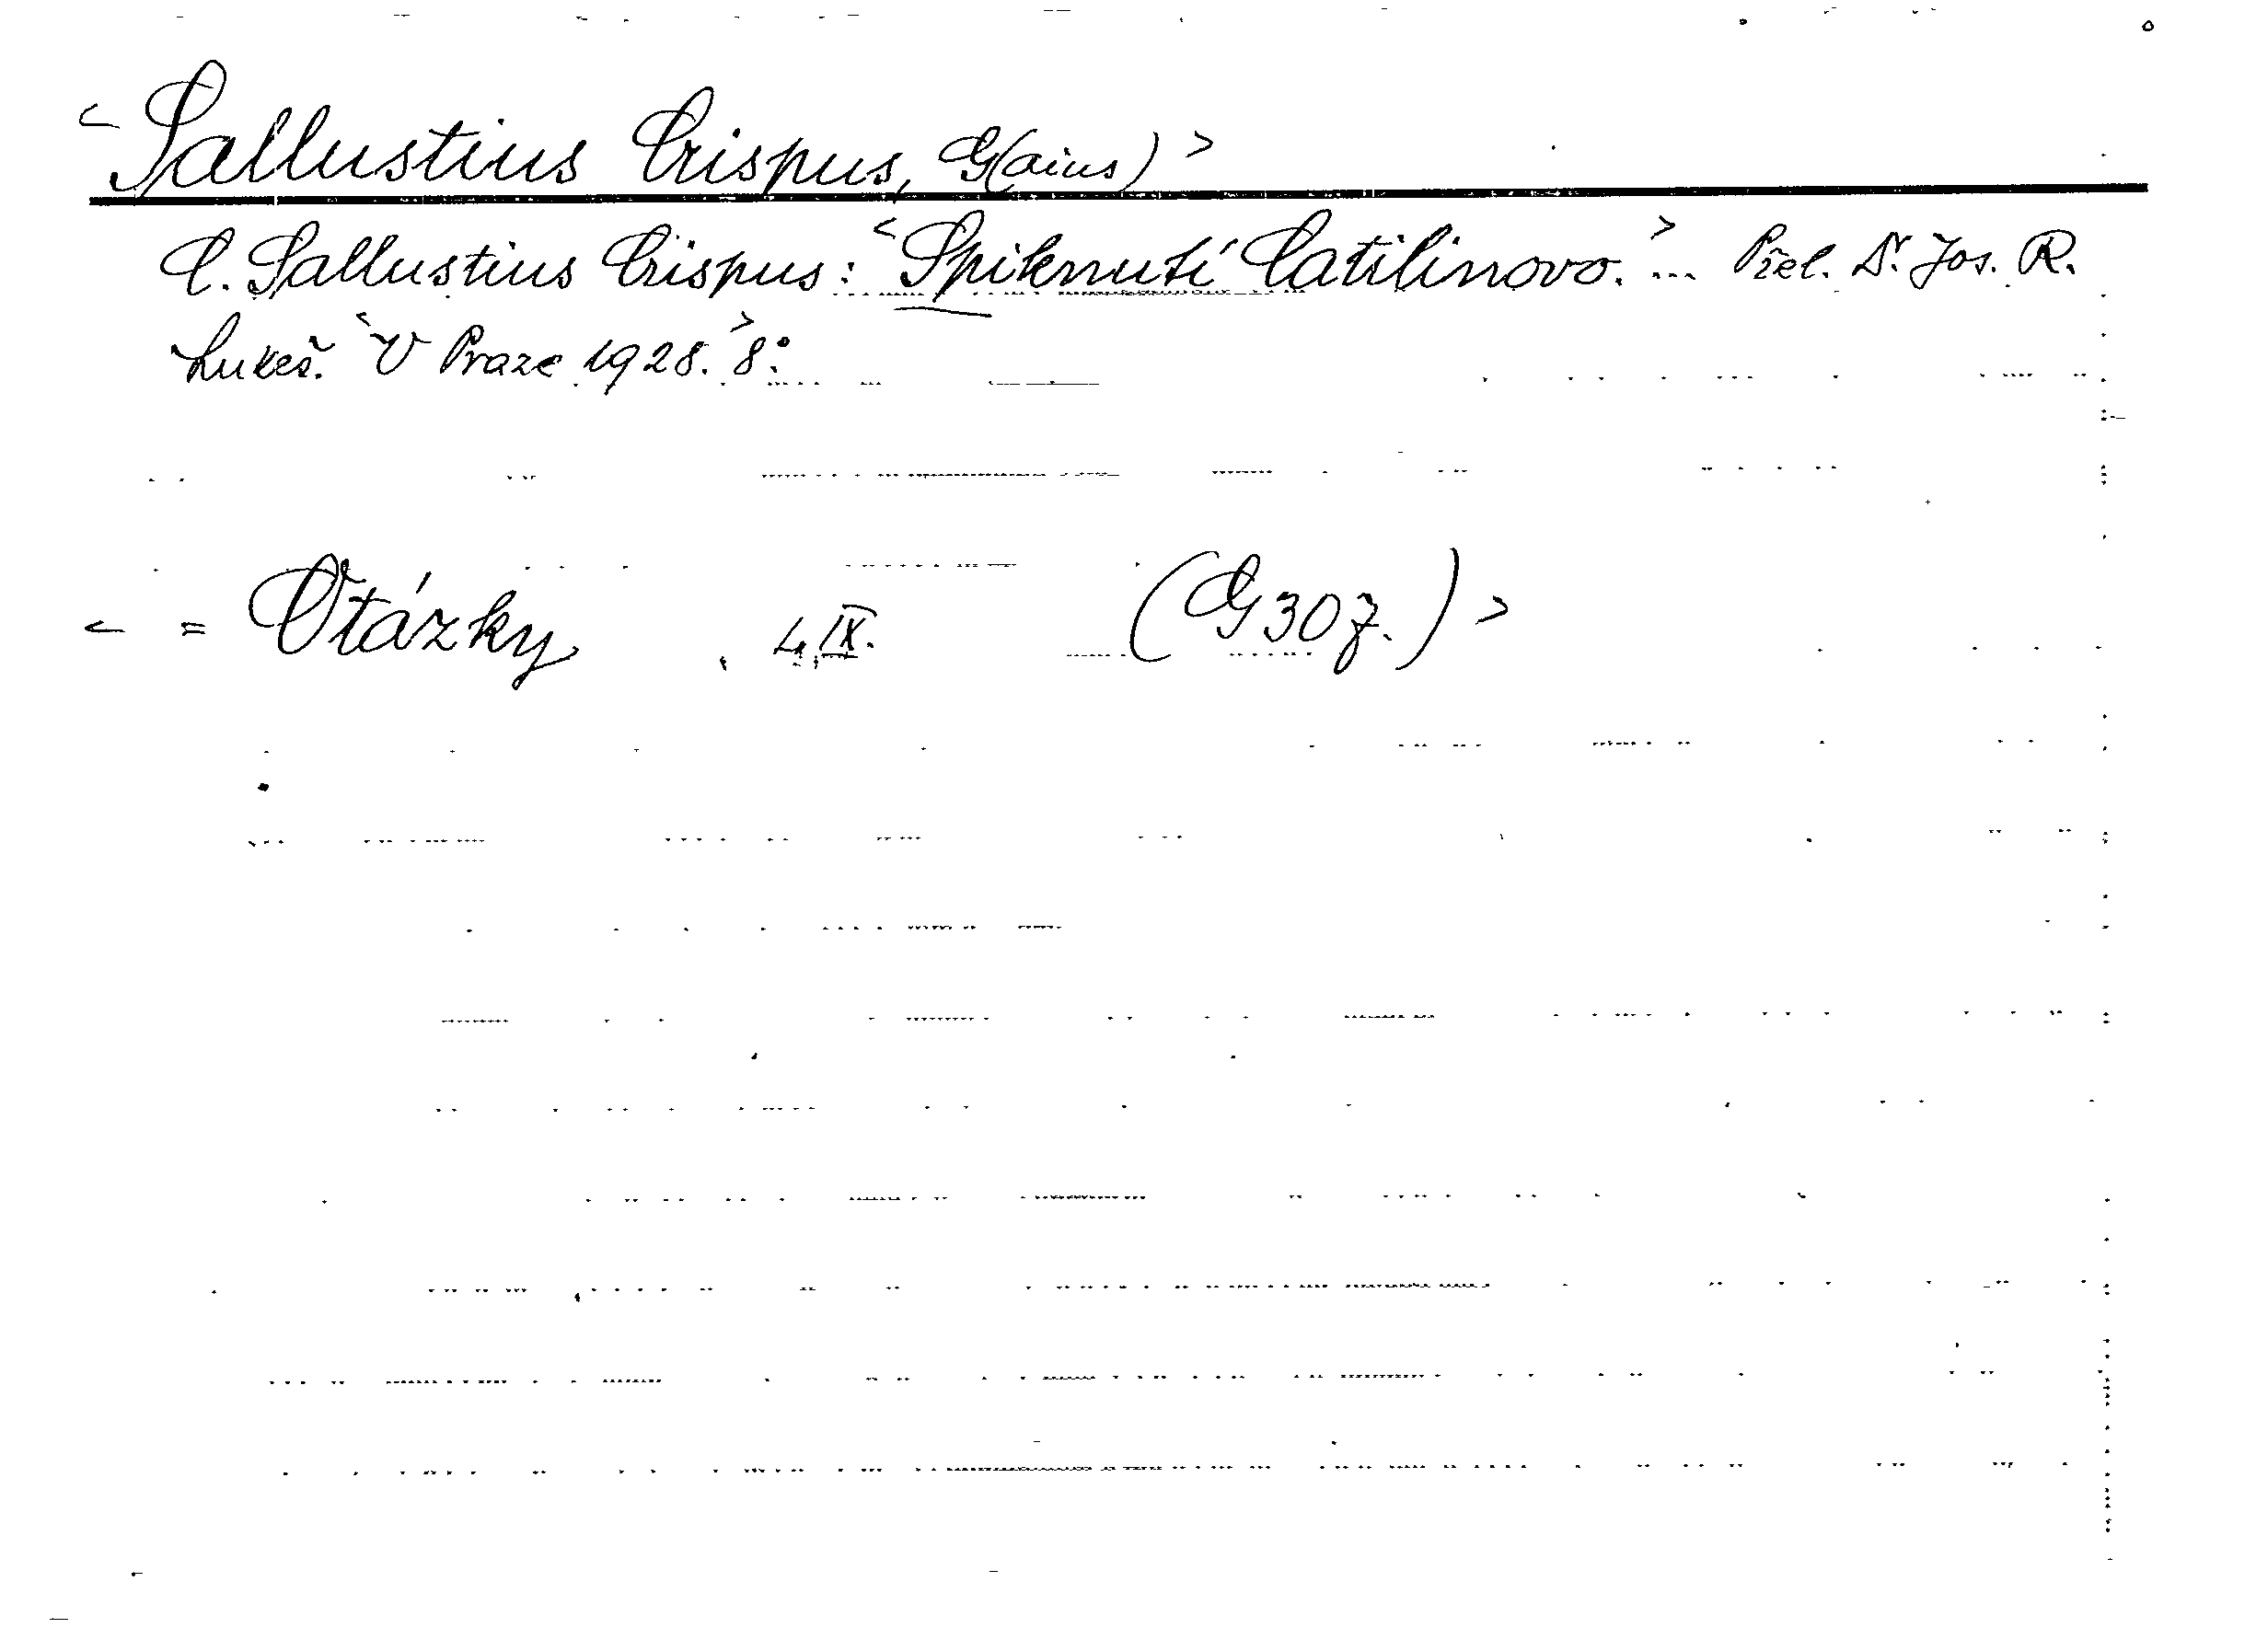 < Sallustius Crispus, G(aius) >
C. Sallustius Crispus: < Spiknutí Catilinovo. > ... Přel. Dr. Jos. R.
Lukeš. < V Praze 1928. > 8°.
< = Otázky 4, IX. (G 307.) >